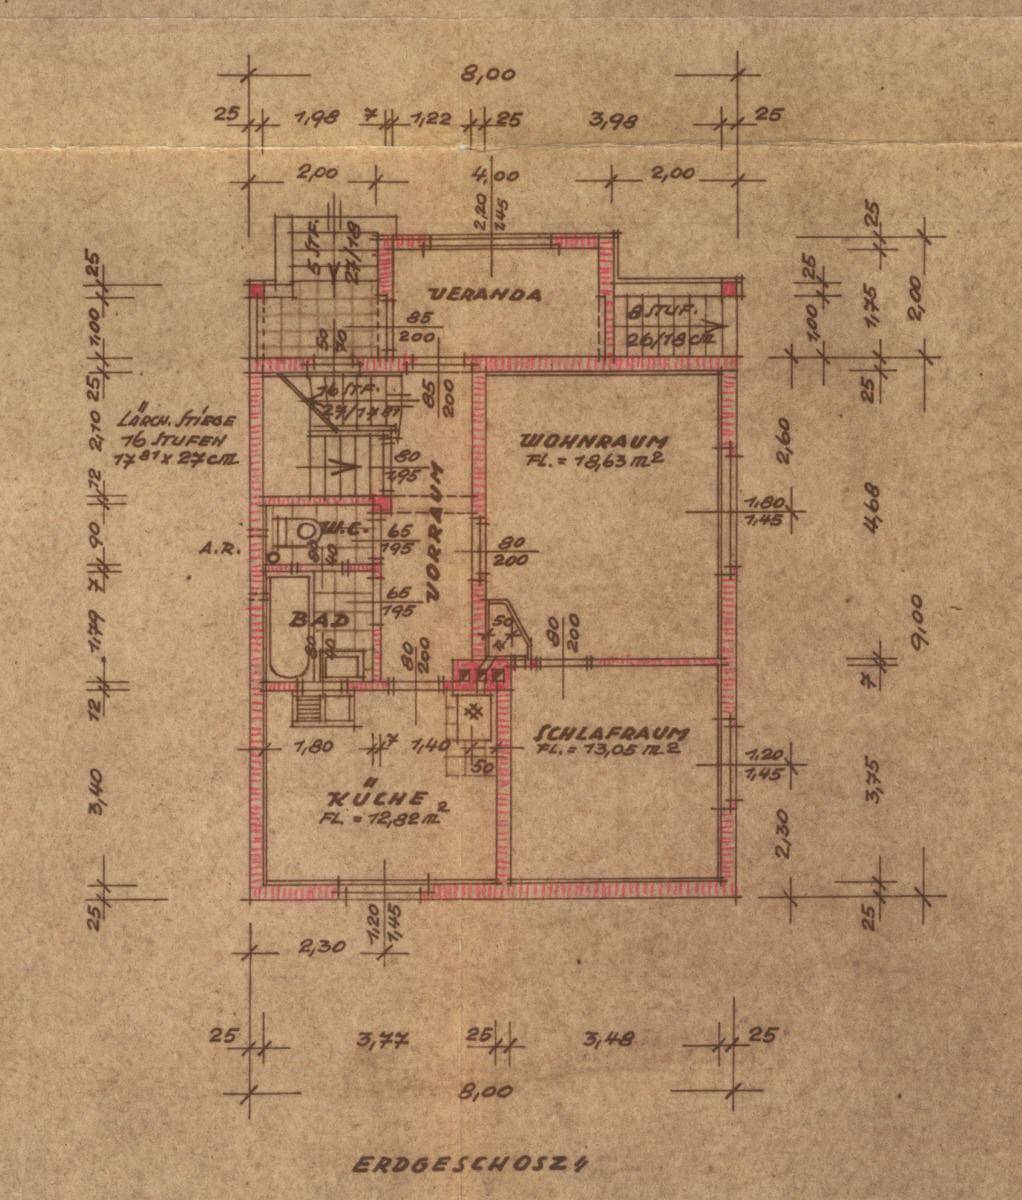 8,00
25 1,98 7 1,22 25 3,98 25
2,00 4,00 2,00
2,20
245
5 STF.
27/18
VERANDA
85
200
50
70
8 STUF.
26/18 cm
25
1,00
25
2,10
12
90
7
1,79
12
3,40
25
LÄRCH. STIEGE
16 STUFEN
17⁸¹ x 27 cm
16 STF.
27/17 81
85
200
80
195
VORRAUM
WOHNRAUM
FL. = 18,63 m²
A.R.
W.C.
60
40
65
195
80
200
BAD
80
40
65
195
80
200
50
80
200
SCHLAFRAUM
FL. = 13,05 m²
1,80 7 1,40
50
KÜCHE
FL. = 12,82 m²
1,80
1,45
1,20
1,45
25
1,00
2,60
2,30
25
1,75
25
4,68
7
3,75
25
2,00
9,00
1,20
1,45
2,30
25 3,77 25 3,48 25
8,00
ERDGESCHOSZ